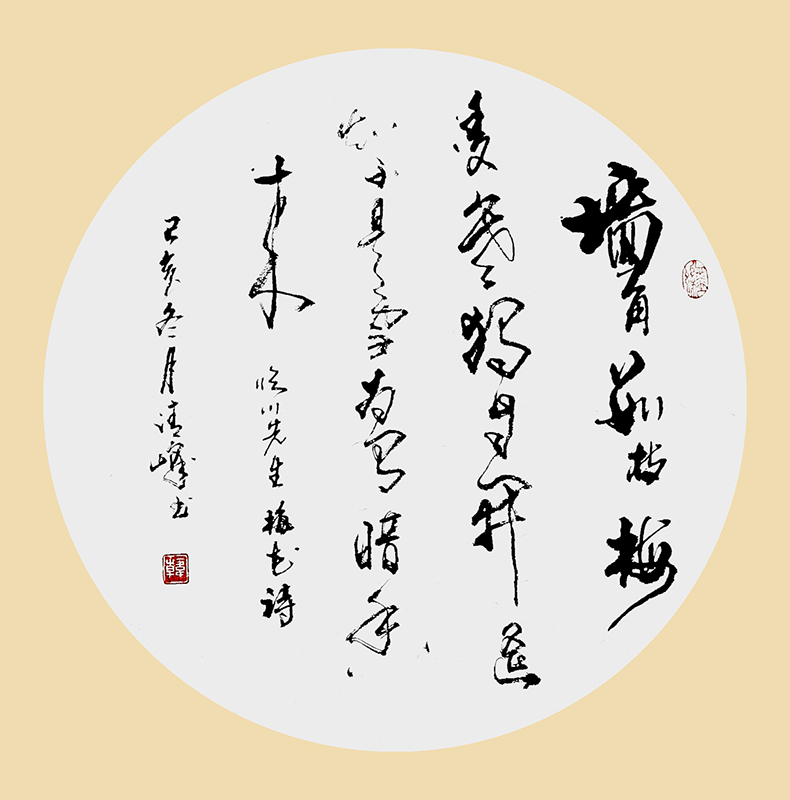 墙角数枝梅
凌寒独自開遥
知不是雪为有暗香
来 临川先生梅花诗
己亥冬月清峰书